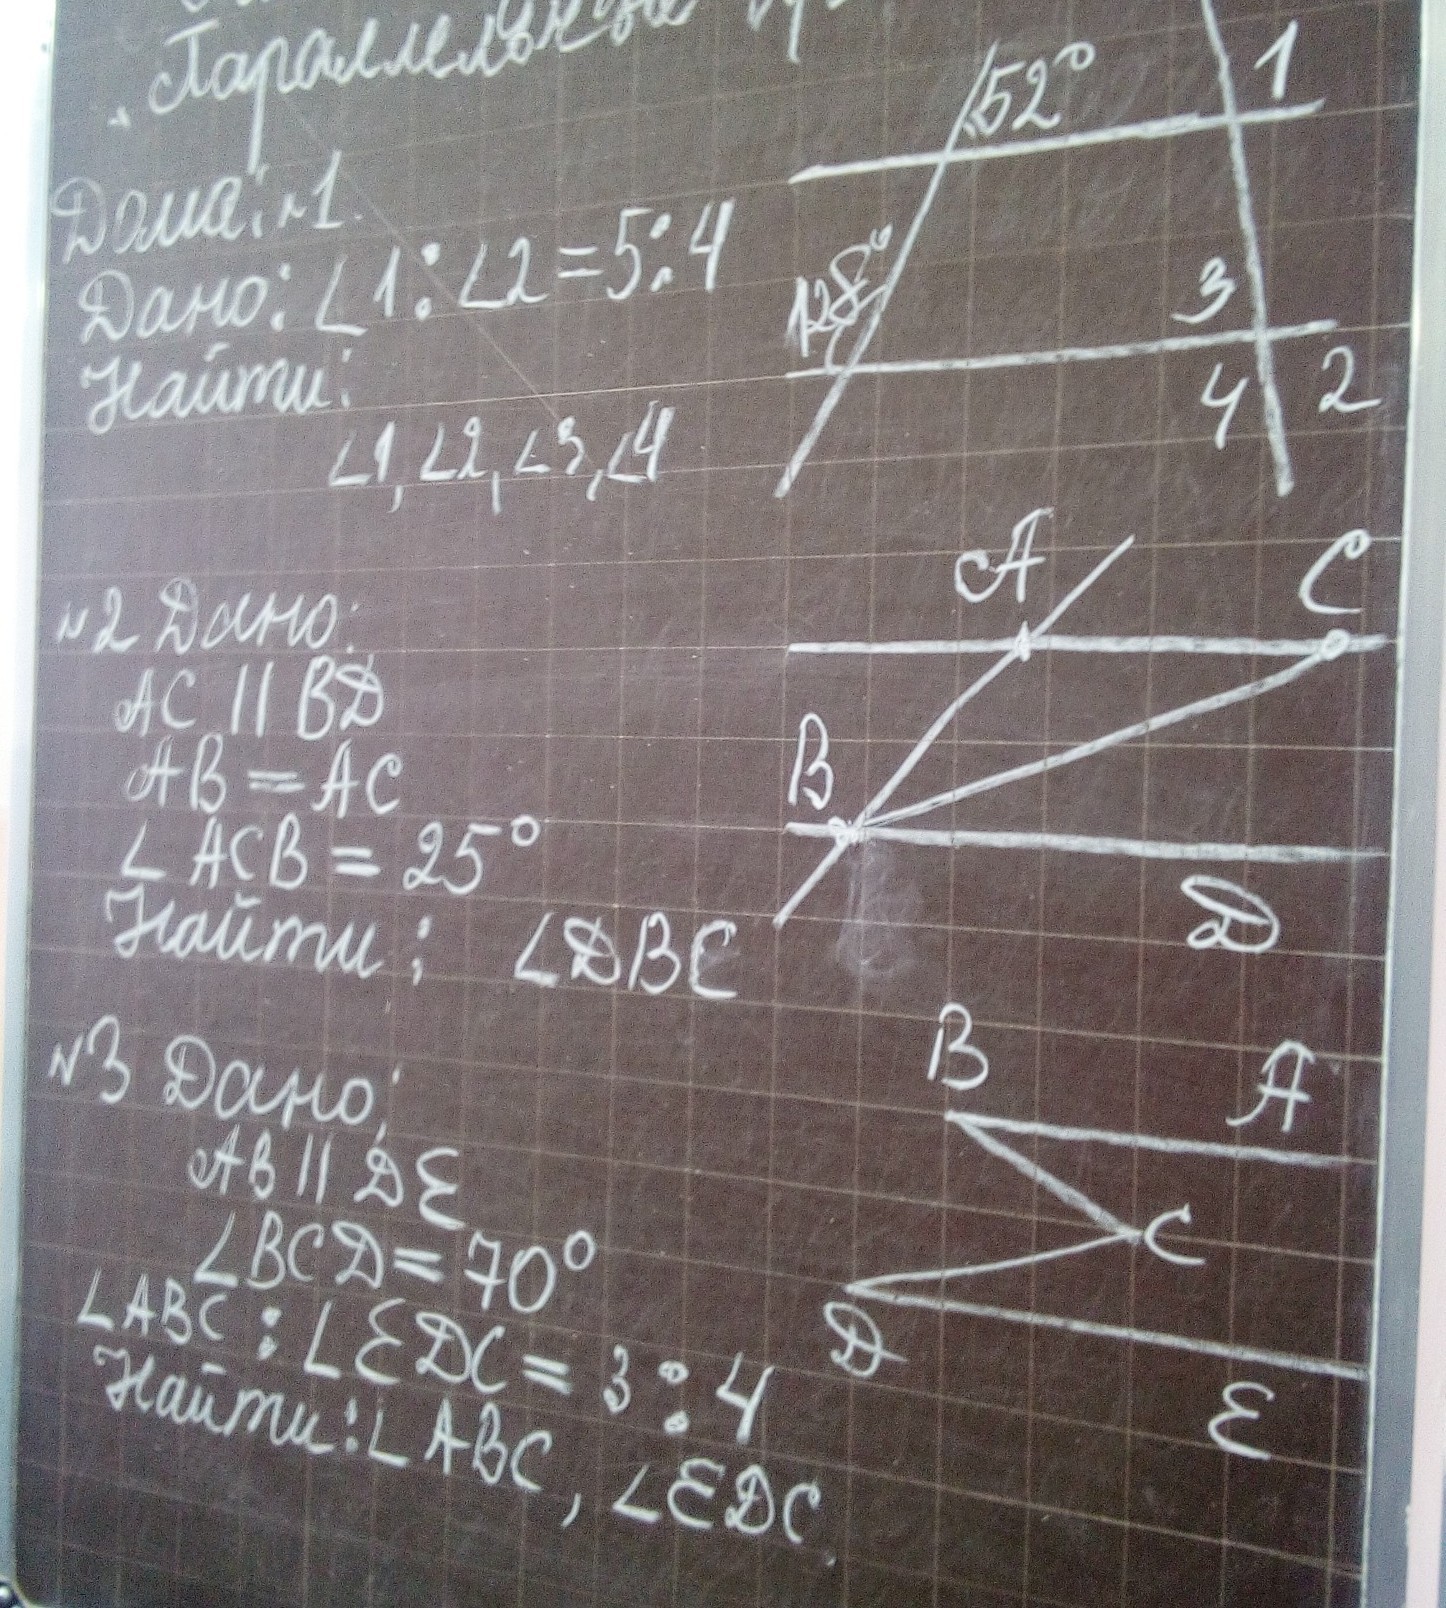 Параллельные
Дома: №1.
Дано: ∠1 : ∠2 = 5 : 4
Найти:
∠1, ∠2, ∠3, ∠4
52°
1
128°
3
4
2
№2 Дано:
AC || BD
AB = AC
∠ACB = 25°
Найти: ∠DBC
A
C
B
D
№3 Дано:
AB || DE
∠BCD = 70°
∠ABC : ∠EDC = 3 : 4
Найти: ∠ABC, ∠EDC
B
A
C
D
E